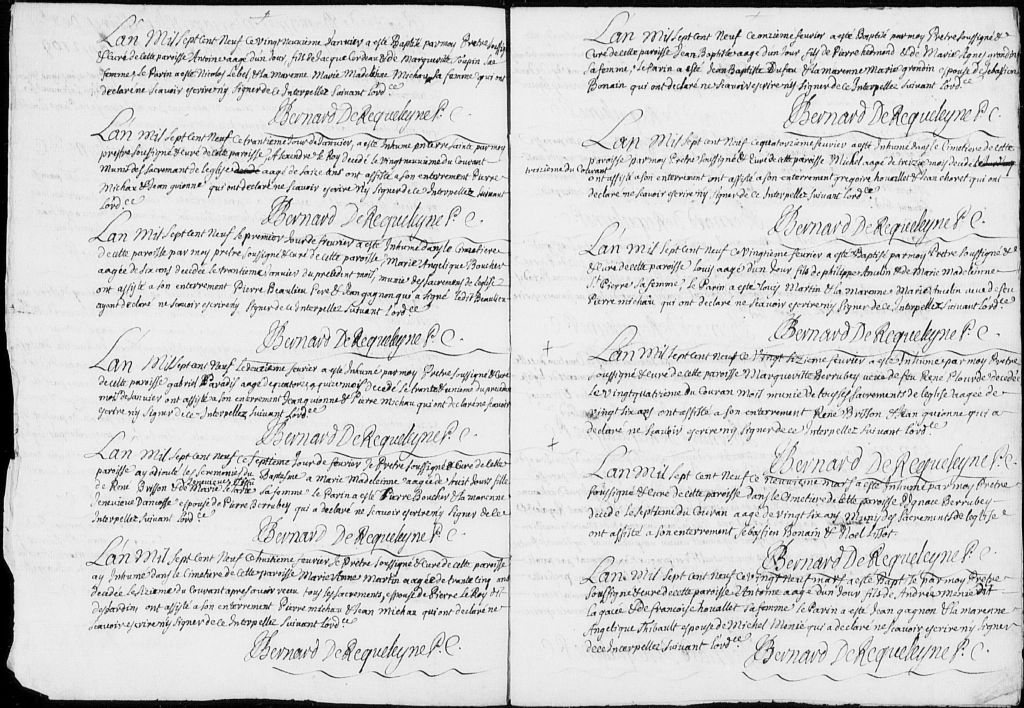 Lan Mil Sept Cent Neuf Ce Vingt neuxieme Janvier a este Baptisé par moy Prêtre Soussigné
& Curé de cette paroisse Antoine aagé d'un Jour, fils de Jacque & de Marguerite Soupin Sa
femme, le Parin a este Nicolas Lebel & la marenne Marie Madelaine Michau Sa femme qui ont
declaré ne scavoir escrire ny Signer de ce Interpellez Suivant Lord.ce
Bernard De Requeleyne P. C.
Lan Mil Sept Cent Neuf Ce trentieme Jour de Janvier, a este Inhumé en terre Sainte par moy
prestre Soussigné & curé de cette paroisse, Alexandre le Roy decedé le Vingt neuxieme du Courant
Muni des Sacremant de leglise aagé de Saize ans ont assisté a son enterrement Pierre
Michau & Jean guionne, qui ont declaré ne Scavoir escrire ny Signer de ce Interpellez Suivant
Lord.ce
Bernard De Requeleyne P. C.
Lan Mil Sept Cent Neuf le premier Jour de feuvrier a este Inhumé dans le Cimetiere
de cette paroisse par moy prêtre Soussigné & curé de cette paroisse, Marie Angelique Boucher
aagée de Six ans decedée le trentieme Janvier du president mois, munie des Sacremens de leglise
ont assisté a son enterrement Pierre Beaulieu Pere & Jean gagnon qui a Signé ledit Beaulieu
ayan declaré ne Scavoir escrire ny Signer de ce Interpellez Suivant Lord.ce
Bernard De Requeleyne P. C.
Lan Mil Sept Cent Neuf le deuxieme Jour feuvrier a este Inhumé par moy Prêtre Soussigné & Curé
de cette paroisse gabriel Paradis aagé de quatre a quinze mois decedé le trante & unieme du precedent
mois de Janvier ont assisté a son enterrement Jean guionne & Pierre Michau qui ont declaré ne Scavoir
escrire ny Signer de ce Interpellez Suivant Lord.ce
Bernard De Requeleyne P. C.
Lan Mil Sept Cent Neuf ce Septieme Jour de feuvrier Je Prêtre Soussigné & Curé de cette
paroisse ay adioute les Ceremonies du Baptesme a Marie Madeleinne aagée de huit Jours fille
de René Brisson & de Marie Sa femme le Parin a este Pierre Boucher & la marenne
Jenevieve Danosse espouse de Pierre Berrubey qui a declaré ne scavoir escrire ny Signer de ce
Interpellez Suivant Lord.ce
Bernard De Requeleyne P. C.
Lan Mil Sept Cent Neuf Ce huitieme feuvrier, Je Prêtre Soussigné & Curé de cette paroisse
ay Inhumé dans le Cimetiere de cette paroisse Marie Anne Martin aagée de trante Cinq ans
decedée le Sixieme du Courant apres avoir receu tous les Sacrements, espouse de Pierre Le Roy dit
desJardin ont assisté a son enterrement Pierre michau & Jean Michau qui ont declaré ne
Scavoir escrire ny Signer de ce Interpellez Suivant Lord.ce
Bernard De Requeleyne P. C.
Lan Mil Sept Cent Neuf Ce onzieme feuvrier a este Baptisé par moy Prêtre Soussigné &
Curé de cette paroisse Jean Baptiste aagé d'un Jour fils de Pierre hedmond & de Marie Agnes grondin
Sa femme, le Parin a este Jean Baptiste Dufau & la marenne Marie grondin espouse de Sebastien
Bonain qui ont declaré ne Scavoir escrire ny Signer de ce Interpellez Suivant Lord.ce
Bernard De Requeleyne P. C.
Lan Mil Sept Cent Neuf Ce quatorzieme feuvrier a este Inhumé dans le Cimetiere de cette
paroisse par moy Prêtre Soussigné & Curé de cette paroisse Michel aagé de traize mois decedé le
treizieme du Courant
ont assisté a son enterrement gregoire houallet & Jean choret qui ont
declaré ne Scavoir escrire ny Signer de ce Interpellez Suivant Lord.ce
Bernard De Requeleyne P. C.
Lan Mil Sept Cent Neuf Ce Vingtieme feuvrier a este Baptisé par moy Prêtre Soussigné &
& Curé de cette paroisse Louis aagé d'un Jour fils de philippe Anculin & de Marie Madelainne
St. Pierre Sa femme, le Parin a este Louis Martin & la Marenne Marie Anculin veue de feu
Pierre michau qui ont declaré ne Scavoir escrire ny Signer de ce Interpellez Suivant Lord.ce
Bernard De Requeleyne P. C.
Lan Mil Sept Cent Neuf Ce Vingt Sixieme feuvrier a este Inhumé par moy Prêtre
Soussigné & curé de cette paroisse Margueritte Berrubey veue de feu René Plourde decedée
le Vingt quatrieme du Couran Mois munie de tous les Sacrements de leglise aagée de
Vingt Six ans ont assisté a son enterrement René Brisson & Jean guionne qui a
declaré ne Scavoir escrire ny Signer de ce Interpellez Suivant Lord.ce
Bernard De Requeleyne P. C.
Lan Mil Sept Cent Neuf Ce neuvieme mars a este Inhumé par moy Prêtre
Soussigné & curé de cette paroisse dans le Cimetiere de cette paroisse Ignace Berrubey
decedé le Septieme du Couran aagé de vingt Six ans Muni des Sacrements de leglise
ont assisté a son enterrement Sebastien Bonain & Noel Lissot.
Bernard De Requeleyne P. C.
Lan Mil Sept Cent Neuf Ce Vingt Neuf mars a este Baptisé par moy Prêtre
Soussigné & curé de cette paroisse Antoine aagé d'un Jour fils de André mienié dit
Lagacé & de francoise houallet Sa femme le Parin a este Jean gagnon & la marenne
Angelique Thibault espouse de Michel Mienié qui a declaré ne Scavoir escrire ny Signer
de ce Interpellez Suivant Lord.ce
Bernard De Requeleyne P. C.